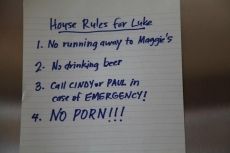 House Rules for Luke
1. No running away to Maggie's
2. No drinking beer
3. Call CINDY or PAUL in
case of EMERGENCY!
4. NO PORN!!!